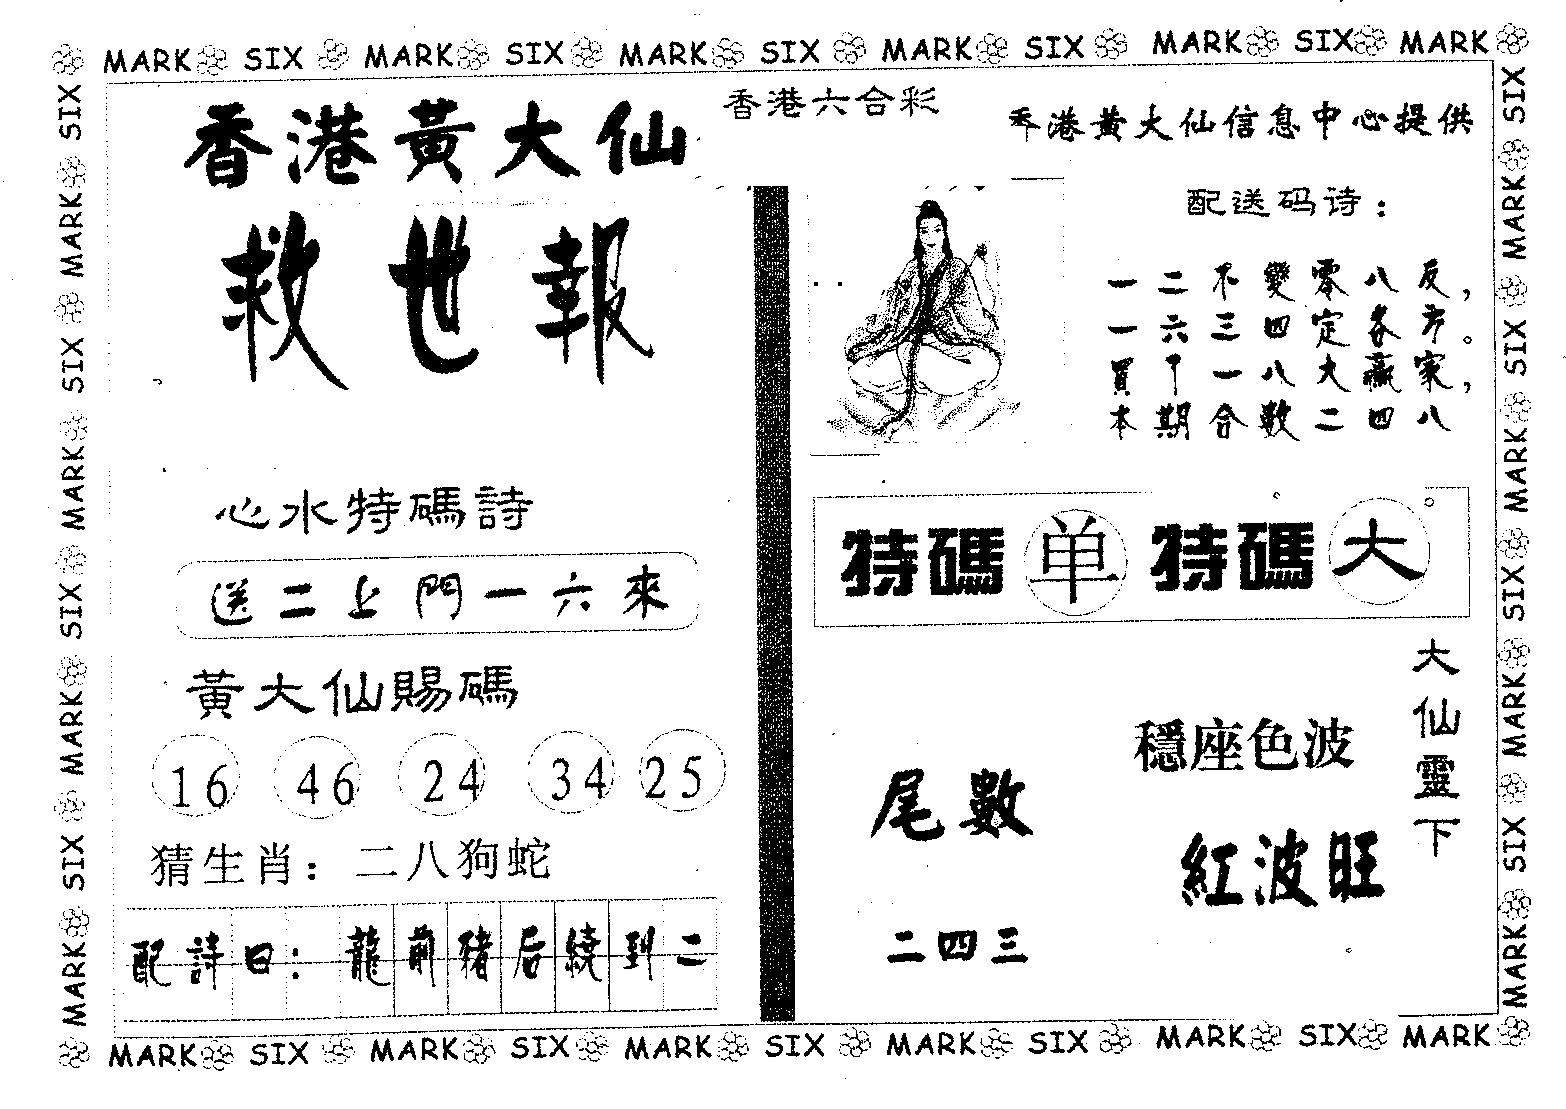 MARK SIX MARK SIX MARK SIX MARK SIX MARK SIX MARK
香港黃大仙
救世報
心水特碼詩
送二上門一六來
黃大仙賜碼
16 46 24 34 25
猜生肖：二八狗蛇
配詩曰：龍前豬后繞到二
香港六合彩
香港黃大仙信息中心提供
配送码诗：
一二不變零八反，
一六三四定各方。
買下一八大贏家，
本期合數二四八
特碼单 特碼大
大仙靈下
穩座色波
紅波旺
尾數
二四三
SIX MARK SIX MARK SIX MARK SIX MARK
SIX MARK SIX MARK SIX MARK SIX MARK
MARK SIX MARK SIX MARK SIX MARK SIX MARK SIX MARK